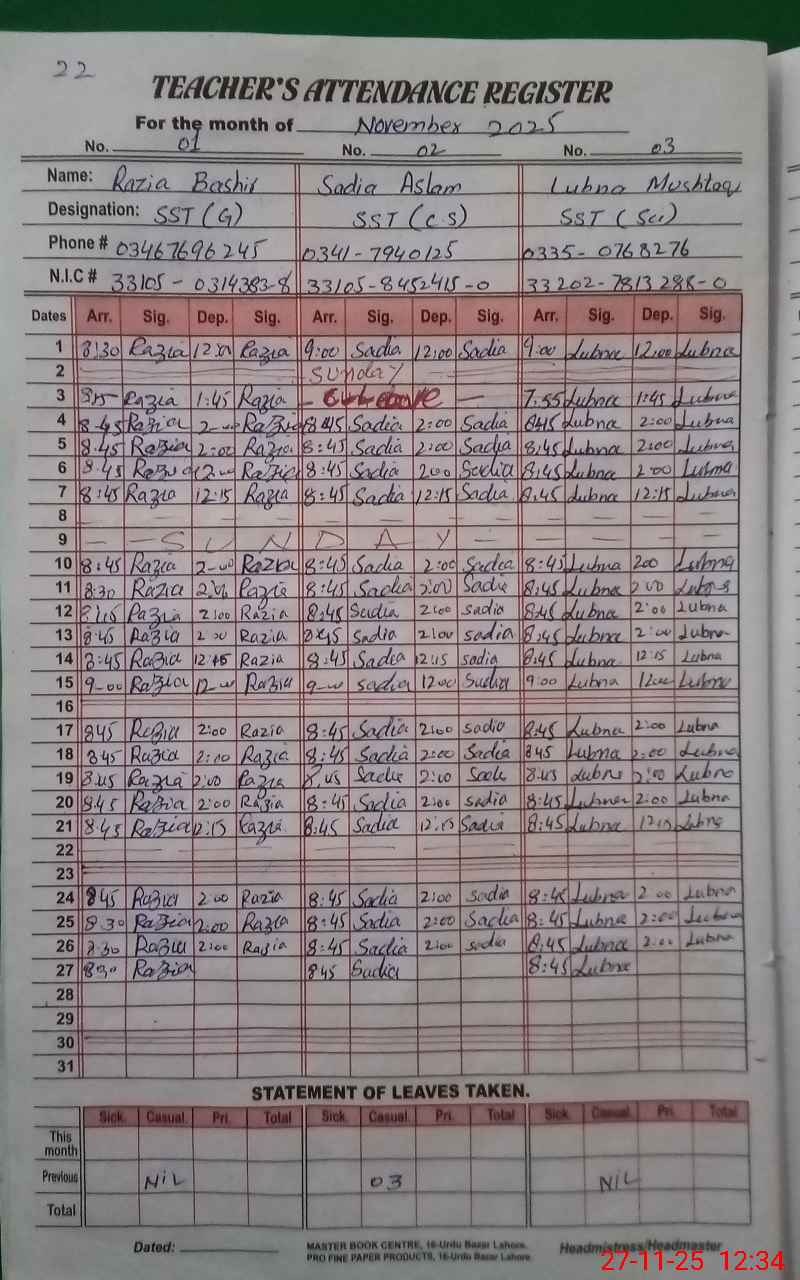 22
TEACHER'S ATTENDANCE REGISTER
For the month of November 2025
No. 01 No. 02 No. 03
Name: Razia Bashir Sadia Aslam Lubna Mushtaq
Designation: SST (G) SST (C.S) SST (Sci)
Phone # 03467696245 0341-7940125 0335-0768276
N.I.C # 33105-0314383-8 33105-8452415-0 33202-7813288-0
Dates Arr. Sig. Dep. Sig. Arr. Sig. Dep. Sig. Arr. Sig. Dep. Sig.
1 8:30 Razia 12:00 Razia 9:00 Sadia 12:00 Sadia 9:00 Lubna 12:00 Lubna
2 SUNDAY
3 Razia 1:45 Razia — leave — 7:55 Lubna 1:45 Lubna
4 8.45 Razia 2-00 Razia 8:45 Sadia 2:00 Sadia 8:45 Lubna 2:00 Lubna
5 8.45 Razia 2:00 Razia 8:45 Sadia 2:00 Sadia 8:45 Lubna 2:00 Lubna
6 8.45 Razia 2-00 Razia 8:45 Sadia 2:00 Sadia 8:45 Lubna 2:00 Lubna
7 8:45 Razia 12:15 Razia 8:45 Sadia 12:15 Sadia 8:45 Lubna 12:15 Lubna
8 — — — — — — — — — — — —
9 — — S U N D A Y — —
10 8:45 Razia 2-00 Razia 8:45 Sadia 2:00 Sadia 8:45 Lubna 2:00 Lubna
11 8:30 Razia 2:00 Razia 8:45 Sadia 2:00 Sadia 8:45 Lubna 2:00 Lubna
12 8:15 Razia 2:00 Razia 8:45 Sadia 2:00 sadia 8:45 Lubna 2:00 Lubna
13 8:45 Razia 2:00 Razia 8:45 Sadia 2:00 sadia 8:45 Lubna 2:00 Lubna
14 8:45 Razia 12:15 Razia 8:45 Sadia 12:15 sadia 8:45 Lubna 12:15 Lubna
15 9-00 Razia 12-00 Razia 9-00 sadia 12:00 Sadia 9:00 Lubna 12:00 Lubna
16
17 8:45 Razia 2:00 Razia 8:45 Sadia 2:00 sadia 8:45 Lubna 2:00 Lubna
18 8:45 Razia 2:00 Razia 8:45 Sadia 2:00 Sadia 8:45 Lubna 2:00 Lubna
19 8:45 Razia 2:00 Razia 8:45 Sadia 2:00 Sadi 8:45 Lubna 2:00 Lubna
20 8:45 Razia 2:00 Razia 8:45 Sadia 2:00 sadia 8:45 Lubna 2:00 Lubna
21 8:45 Razia 12:15 Razia 8:45 Sadia 12:15 Sadia 8:45 Lubna 12:15 Lubna
22 — — — — — — — — — — — —
23
24 8:45 Razia 2:00 Razia 8:45 Sadia 2:00 sadia 8:45 Lubna 2:00 Lubna
25 8.30 Razia 2:00 Razia 8:45 Sadia 2:00 Sadia 8:45 Lubna 2:00 Lubna
26 8:30 Razia 2:00 Razia 8:45 Sadia 2:00 sadia 8:45 Lubna 2:00 Lubna
27 8:30 Razia 8:45 Sadia 8:45 Lubna
28
29
30
31
STATEMENT OF LEAVES TAKEN.
Sick. Casual. Pri. Total Sick. Casual. Pri. Total Sick. Casual. Pri. Total
This month
Previous NiL 03 NiL
Total
Dated: MASTER BOOK CENTRE, 16-Urdu Bazar Lahore. Headmistress/Headmaster
PRO FINE PAPER PRODUCTS, 16-Urdu Bazar Lahore.
27-11-25 12:34